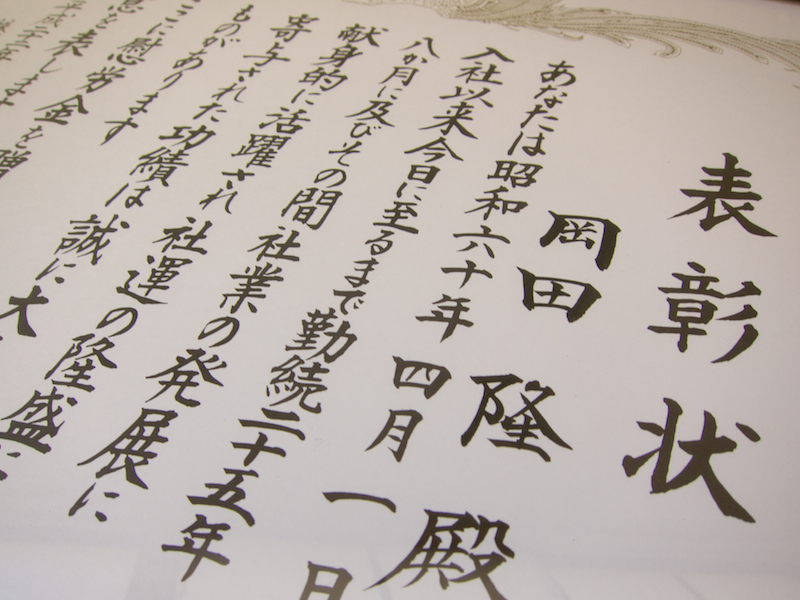 表彰状
岡田 隆 殿
あなたは昭和六十年四月一日
入社以来今日に至るまで勤続二十五年
八か月に及びその間社業の発展に
献身的に活躍され社運の隆盛に
寄与された功績は誠に大
ものがあります
ここに慰労金を贈
意を表します
平成二十二年